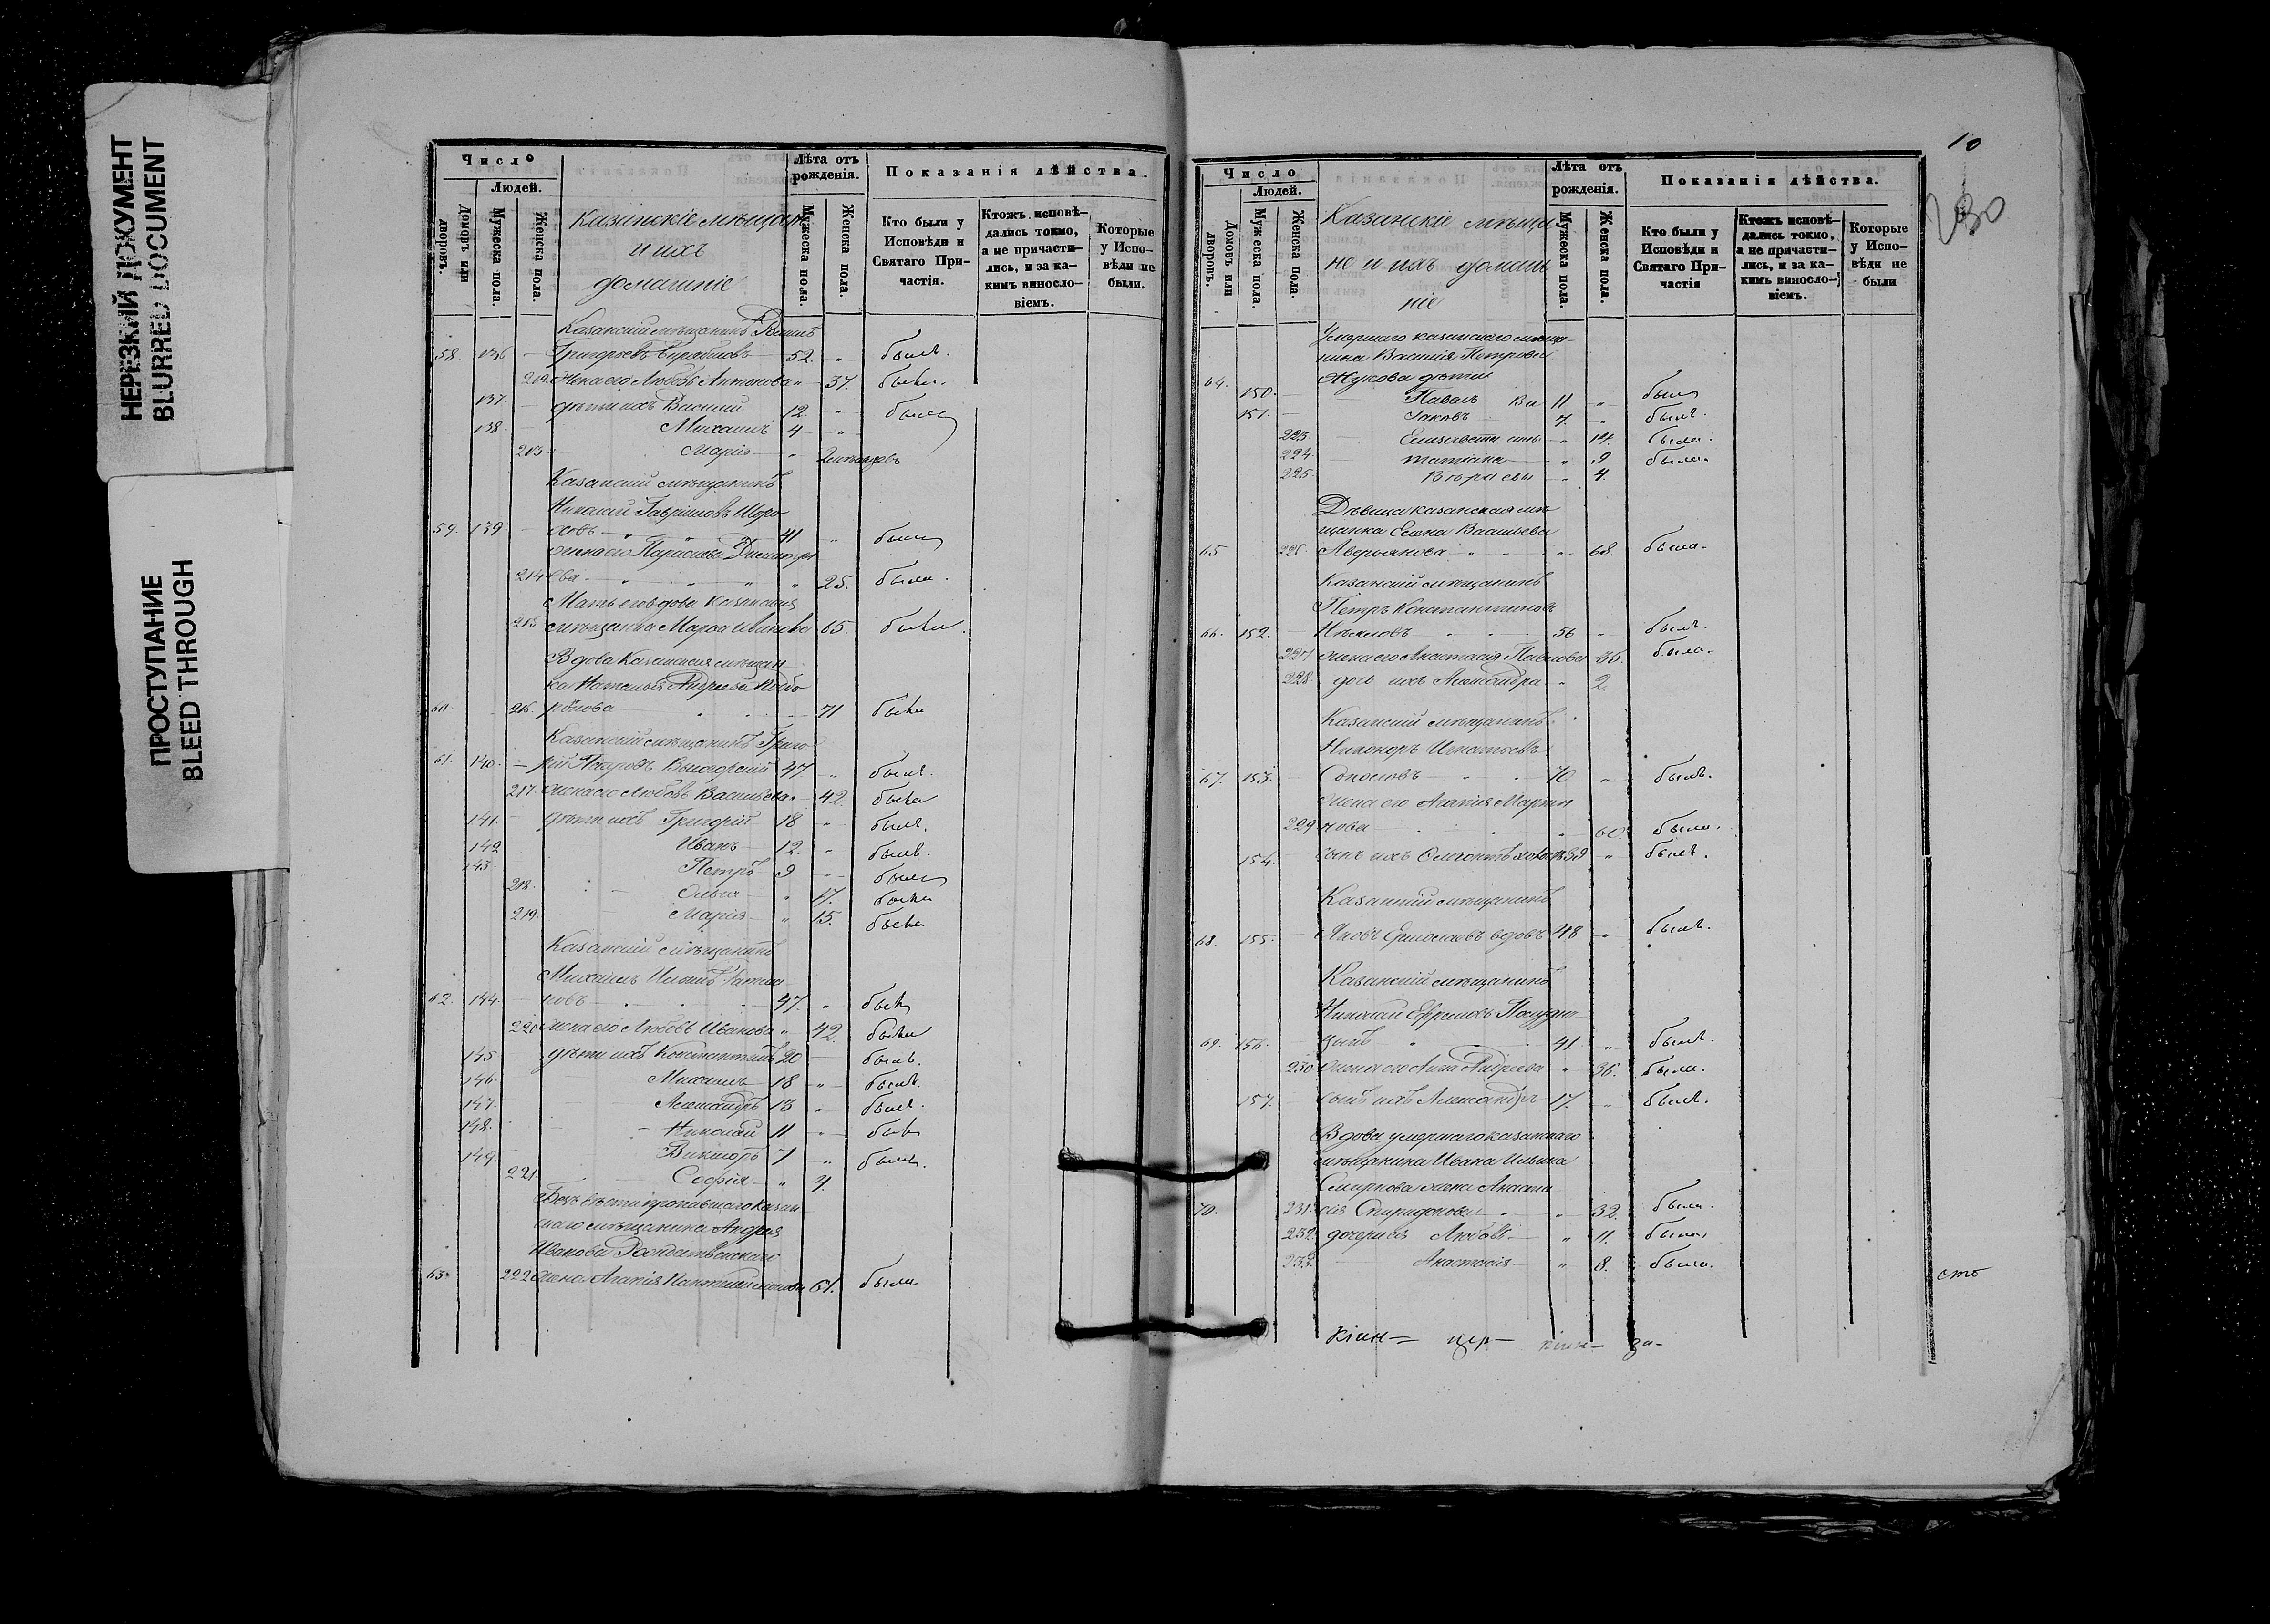 НЕРЕЗКИЙ ДОКУМЕНТ
BLURRED DOCUMENT
ПРОСТУПАНИЕ
BLEED THROUGH
Число
Людей.
Домовъ или дворовъ.
Мужеска пола.
Женска пола.
Казанскіе мѣщане
и ихъ
домашніе
Лѣта отъ рожденія.
Мужеска пола.
Женска пола.
Показанія дѣйства.
Кто были у Исповѣди и Святаго Причастія.
Ктожъ исповѣдались токмо, а не причастились, и за какимъ винословіемъ.
Которые у Исповѣди не были.
Казанскій мѣщанинъ
58. 136 Григорьевъ 52. " былъ.
212. Жена его Любовь Антонова " 37. была.
137. дѣти ихъ Василій 12. " былъ
138. Михаилъ 4 "
213 Марія "
Казанскій мѣщанинъ
Николай Гавриловъ Шоро
59. 139 ховъ 41 " былъ
жена его Параскева Дмитріе
214 ва " 25. была.
Мать его вдова казанская
215 мѣщанка Марѳа Иванова 65. была.
Вдова Казанская мѣщан
ка Наталья Андреева
60. 216. 71 была
Казанскій мѣщанинъ Григо
61. 140. рій Петровъ Высоцкій 47 " былъ.
217. жена его Любовь Васильева " 42. была
141. дѣти ихъ Григорій 18 " былъ.
142 Иванъ 12. " былъ.
143. Петръ 9 " былъ
218. Ольга " 17. была
219. Марія " 15. была
Казанскій мѣщанинъ
Михаилъ
62. 144. ковъ 47. " былъ
220 жена его Любовь Иванова " 42. была
145 дѣти ихъ Константинъ 20 былъ.
146. Михаилъ 18 " былъ.
147. Александръ 13 " былъ.
148. Николай 11 " былъ
149. Викторъ 7 " былъ.
221. Софія " 4.
Безъ вѣсти пропавшаго казан
скаго мѣщанина Андрея
Иванова Рождественскаго
63. 222 жена Агапія 61. была
10
230
Число
Людей.
Домовъ или дворовъ.
Мужеска пола.
Женска пола.
Казанскіе мѣща
не и ихъ домаш
ніе
Лѣта отъ рожденія.
Мужеска пола.
Женска пола.
Показанія дѣйства.
Кто были у Исповѣди и Святаго Причастія
Ктожъ исповѣдались токмо, а не причастились, и за какимъ винословіемъ.
Которые у Исповѣди не были
Умершаго казанскаго мѣща
нина Василія Петрова
64. Жукова дѣти
150. Павелъ Ва 11 " былъ
151. Іаковъ 7. " былъ.
223. Елизавета силь " 14. была.
224. Татіана " 9 была.
225. Вѣра евы " 4.
Дѣвица казанская мѣ
щанка Елена Васильева
65 226. Аверьянова " 68. была.
Казанскій мѣщанинъ
Петръ Константиновъ
66. 152. 56 " былъ.
227 жена его Анастасія Павлова 35. была.
228. дочь ихъ Александра " 2.
Казанскій мѣщанинъ
Никаноръ Игнатьевъ
67. 153. Соколовъ 70 " былъ.
Жена его Агапія Марты
229 нова " 60. была.
154. сынъ ихъ 39 " былъ.
Казанскій мѣщанинъ
68. 155. Яковъ Ермолаевъ вдовъ 48 " былъ.
Казанскій мѣщанинъ
Николай Ефремовъ
69. 156. 41 " былъ.
230 Жена его Анна Андреева " 36. была.
157. сынъ ихъ Александръ 17. " былъ.
Вдова умершаго казанскаго
мѣщанина Ивана Ильина
Смирнова жена Анаста
70. 231. сія Спиридонова " 32. была.
232. дочери ея Любовь " 11. была,
233. Анастасія " 8. была.
сто